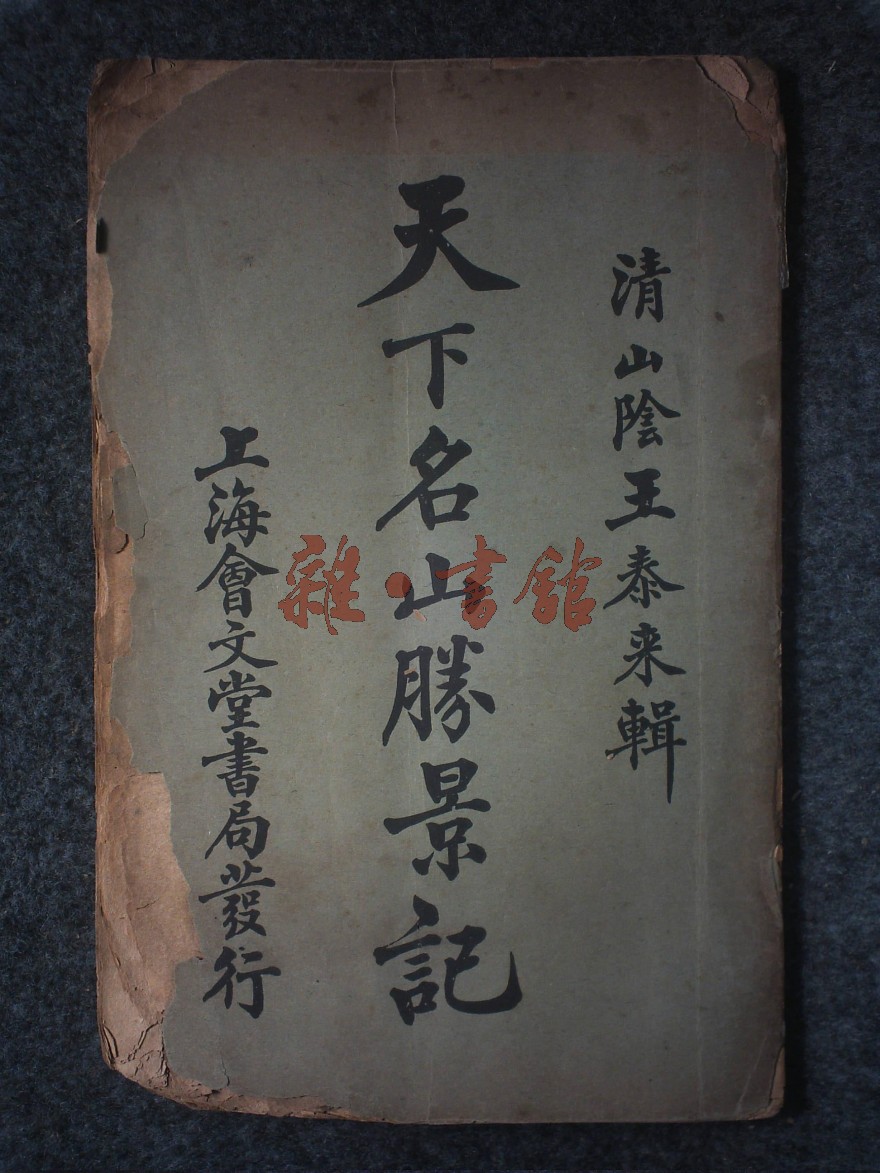 清山陰王泰来輯
天下名山勝景記
上海會文堂書局發行
雜·書館